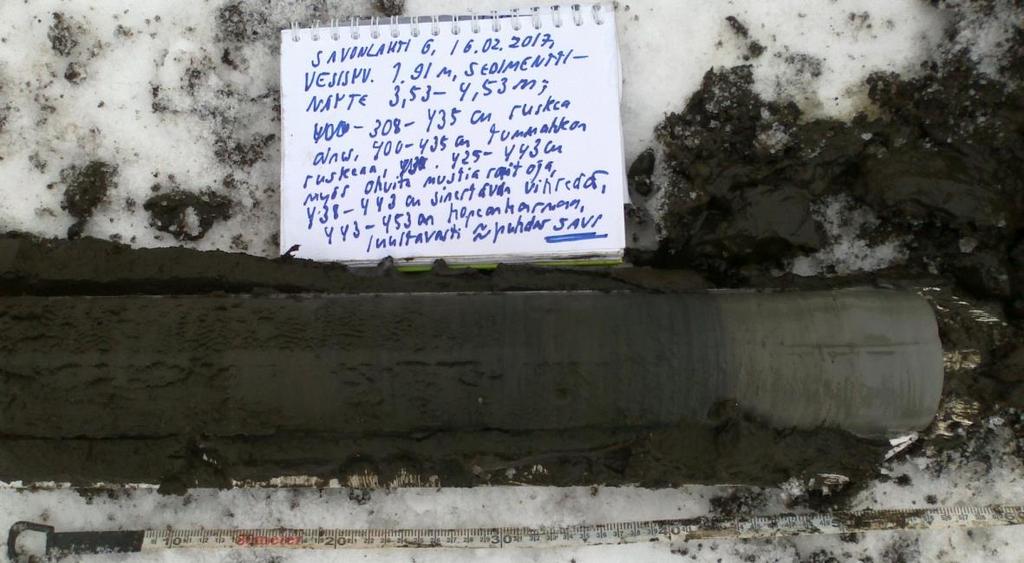 SAVONLAHTI 6, 16.02.2017,
VESISYV. 1.91 m, SEDIMENTTI-
NÄYTE 3,53-4,53 m;
308-435 cm ruskea
400-435 cm tummahkon
ruskeaa, 425-443 cm
myös ohuita mustia raitoja,
438-443 cm sinertävän vihreää,
443-453 cm hopeanharmaa,
puhdas SAVI
10 8 meter 20 30 40